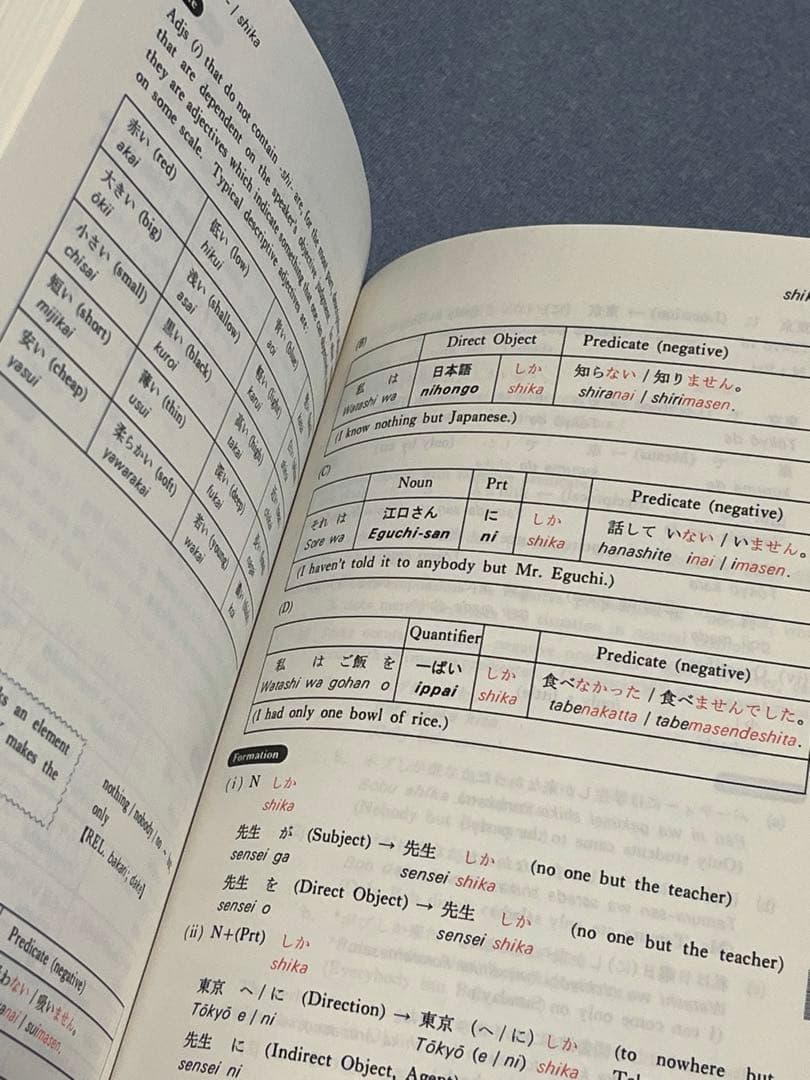 ~ / shika
Adjs (i) that do not contain -shi- are, for the most part,
that are dependent on the speaker's objective judgment.
they are adjectives which indicate something that one can
on some scale. Typical descriptive adjectives are:
赤い (red) 低い (low) 青い (blue)
akai hikui aoi
大きい (big) 浅い (shallow) 軽い (light)
ōkii asai karui
小さい (small) 黒い (black) 高い (high)
chisai kuroi takai
短い (short) 薄い (thin) 深い (deep)
mijikai usui fukai
安い (cheap) 柔らかい (soft) 若い (young)
yasui yawarakai wakai
an element
makes the
nothing / nobody / no ~ but,
only
[REL. bakari; dake]
Predicate (negative)
わない / 吸いません。
anai / suimasen.
(B)
Direct Object Predicate (negative)
私 は 日本語 しか 知らない / 知りません。
Watashi wa nihongo shika shiranai / shirimasen.
(I know nothing but Japanese.)
(C)
Noun Prt Predicate (negative)
それ は 江口さん に しか 話して いない / いません。
Sore wa Eguchi-san ni shika hanashite inai / imasen.
(I haven't told it to anybody but Mr. Eguchi.)
(D)
Quantifier Predicate (negative)
私 は ご飯 を 一ぱい しか 食べなかった / 食べませんでした。
Watashi wa gohan o ippai shika tabenakatta / tabemasendeshita.
(I had only one bowl of rice.)
Formation
(i) N しか
shika
先生 が (Subject) → 先生 しか (no one but the teacher)
sensei ga sensei shika
先生 を (Direct Object) → 先生 しか (no one but the teacher)
sensei o sensei shika
(ii) N+(Prt) しか
shika
東京 へ / に (Direction) → 東京 (へ / に) しか (to nowhere but
Tōkyō e / ni Tōkyō (e / ni) shika
先生 に (Indirect Object, Agent)
sensei ni